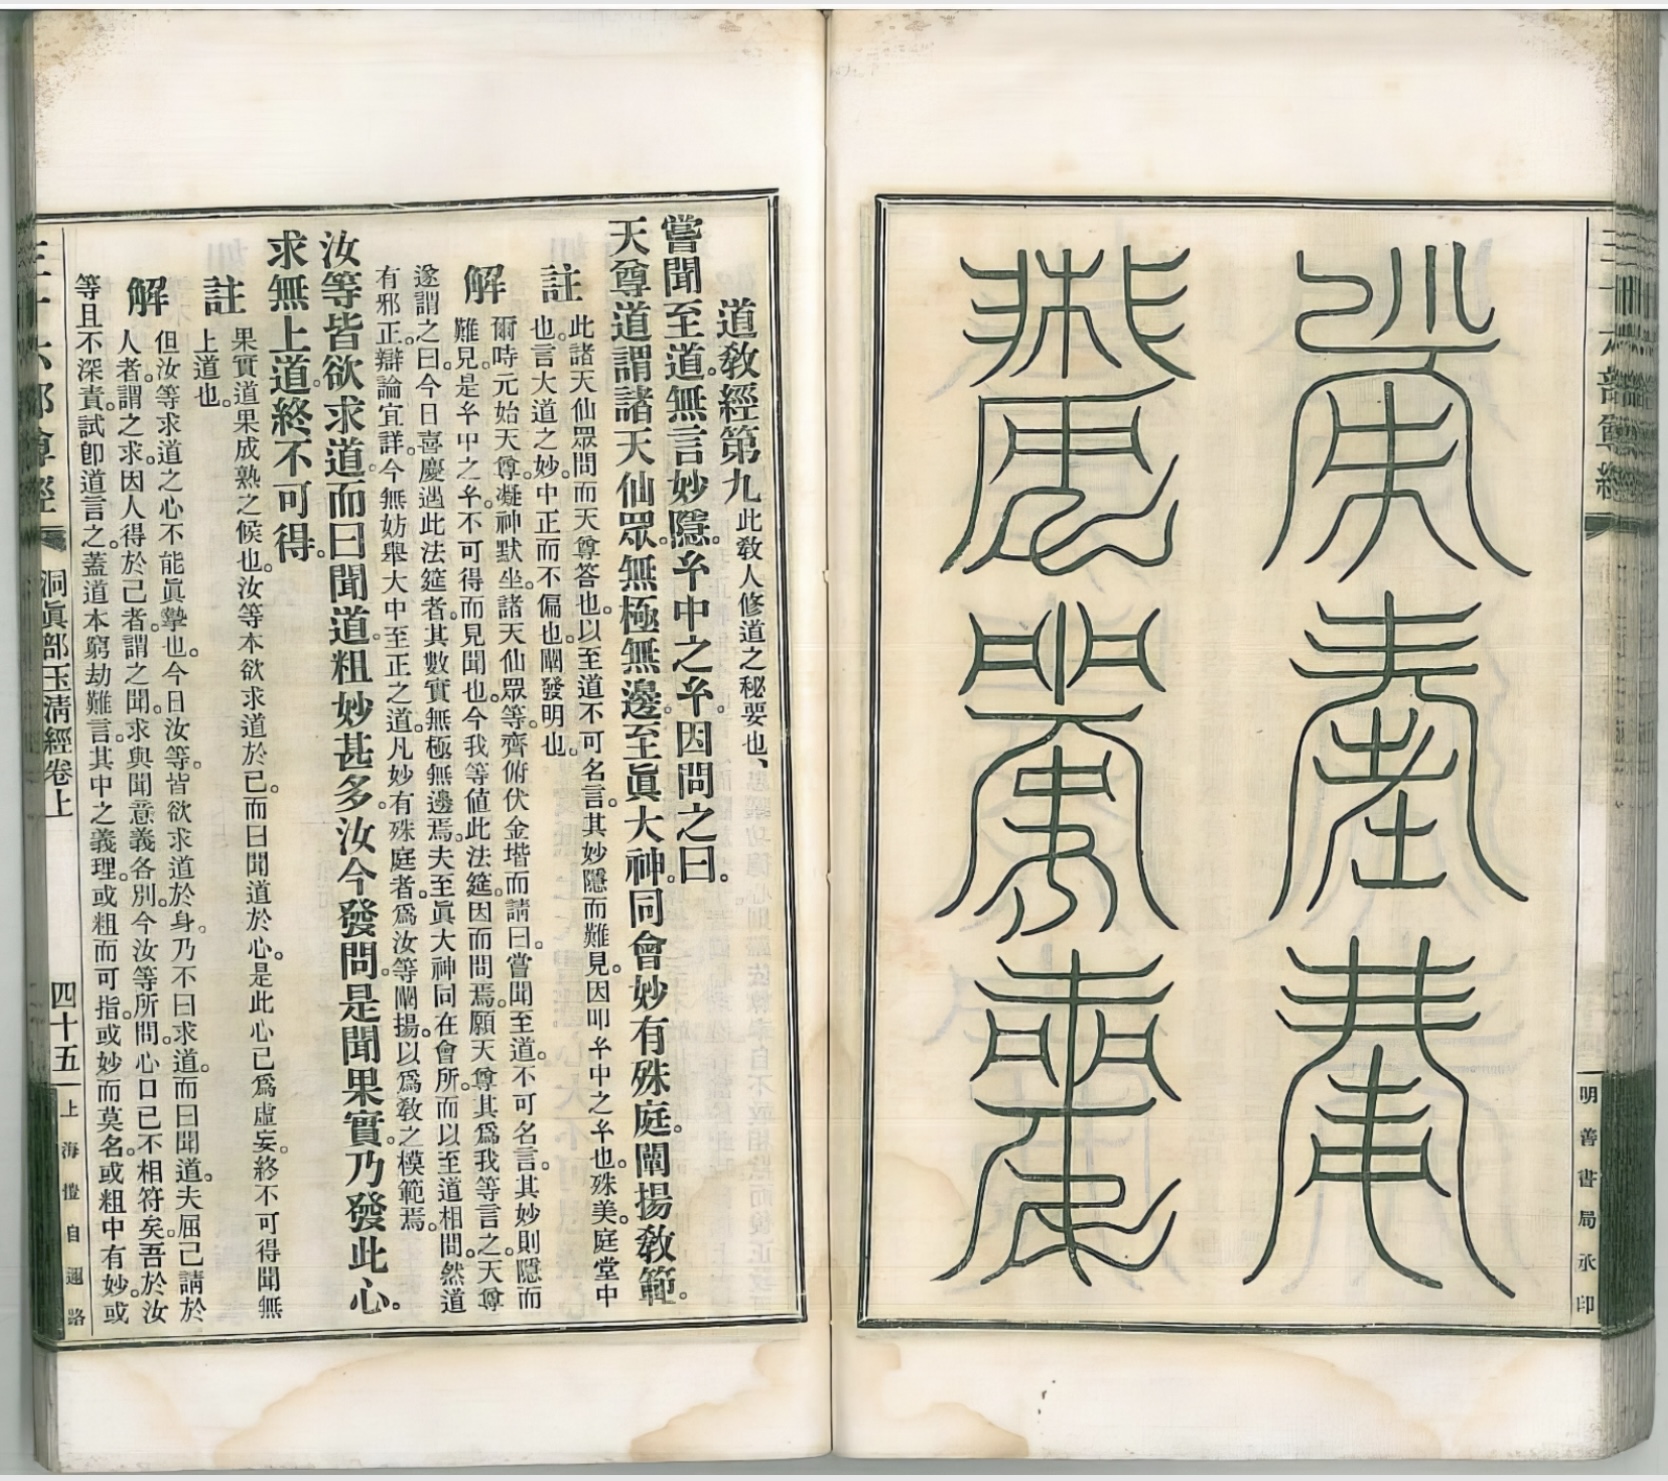 三十六部尊經
明善書局承印
道教經第九此教人修道之秘要也、
嘗聞至道。無言妙隱。玄中之玄。因問之曰。
天尊道謂諸天仙眾。無極無邊。至眞大神。同會妙有殊庭。闡揚教範。
註
此諸天仙眾問而天尊答也。以至道不可名言。其妙隱而難見。因叩玄中之玄也。殊美。庭堂中
也。言大道之妙。中正而不偏也。闡發明也。
解
爾時元始天尊。凝神默坐。諸天仙眾等。齊俯伏金堦而請曰。嘗聞至道。不可名言。其妙則隱而
難見。是玄中之玄。不可得而見聞也。今我等値此法筵。因而問焉。願天尊其爲我等言之。天尊
遂謂之曰。今日喜慶遇此法筵者。其數實無極無邊焉。夫至眞大神同在會所。而以至道相問。然道
有邪正。辯論宜詳。今無妨舉大中至正之道。凡妙有殊庭者。爲汝等闡揚。以爲教之模範焉。
汝等皆欲求道。而曰聞道。粗妙甚多。汝今發問。是聞果實。乃發此心。
求無上道。終不可得。
註
果實道果成熟之候也。汝等本欲求道於已。而曰聞道於心。是此心已爲虛妄。終不可得聞無
上道也。
解
但汝等求道之心不能眞摯也。今日汝等。皆欲求道於身。乃不曰求道。而曰聞道。夫屈己請於
人者。謂之求。因人得於己者。謂之聞。求與聞意義各別。今汝等所問。心口已不相符矣。吾於汝
等且不深責。試卽道言之。蓋道本窮劫難言。其中之義理。或粗而可指。或妙而莫名。或粗中有妙。或
三十六部尊經
洞眞部玉淸經卷上
四十五
上海愷自邇路